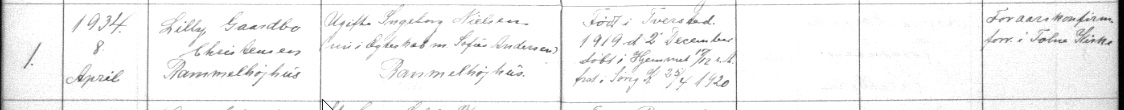 1.
1934.
8
April
Lilly Gaardbo
Christensen
Rammelhøjhus
Ugifte Ingeborg Nielsen
(nu i Ægteskab m. Sofus Andersen)
Rammelhøjhus.
Født i Tversted
1919 d 2 December
døbt i Hjemmet
frst i Sørig K 25/4 1920
Foraarskonfirm
forr. i Tolne Kirke